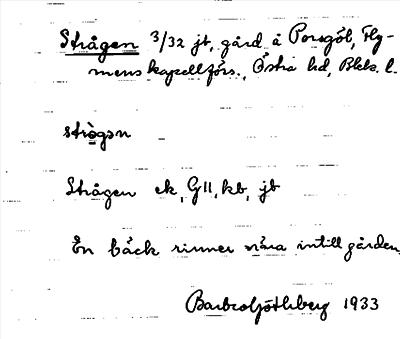 Strågen 3/32 jb, gård å Porsgöl, Fly-
mens kapellförs., Östra hd, Blek. l.
strògən
Strågen ek, GII, kb, jb
En bäck rinner nära intill gården.
Barbro Göthberg 1933